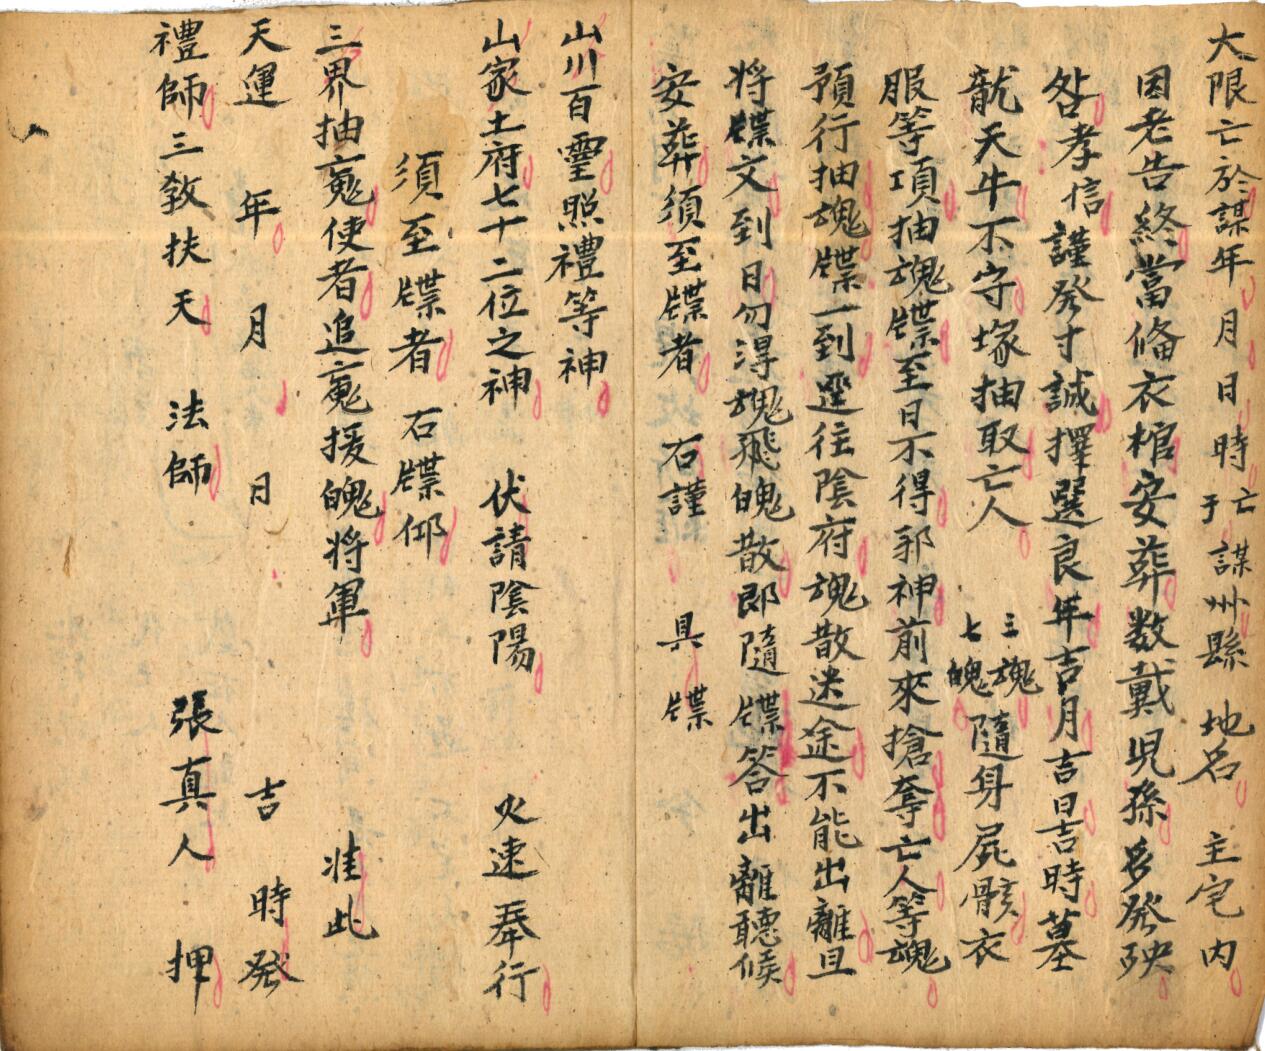 大限亡於謀年月日時亡于謀州縣地名主宅内
因老告終當俻衣棺安葬数戴児孫多發殃
咎孝信謹發寸誠擇選良年吉月吉日吉時墓
龍天牛不守塚抽取亡人三魂七魄隨身屍骸衣
服等項抽魂牒至日不得邪神前來搶奪亡人等魂
預行抽魂牒一到逕往陰府魂散迷途不能出離且
将牒文到日勿淂魂飛魄散即隨牒答出離聽候
安葬須至牒者右謹具牒
山川百靈照禮等神
山家土府七十二位之神伏請陰陽火速奉行
須至牒者右牒仰
三界抽䰟使者追䰟援魄将軍准此
天運年月日吉時發
禮師三敎扶天法師張真人押